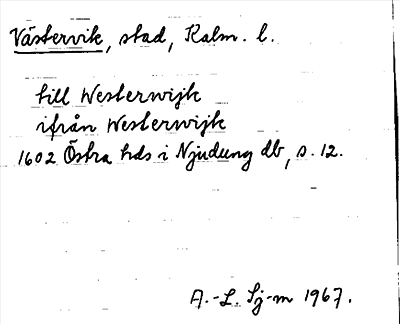 Västervik, stad, Kalm. l.
till Westerwijk
ifrån Westerwijk
1602 Östra hds i Njudung db, s. 12.
A.-L. Sj-m 1967.